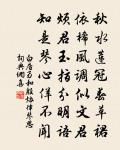 秋水蓮冠春草裙
依稀風調似文君
煩君玉指分明語
知是琴心佯不聞
白居易和殷協律琴思